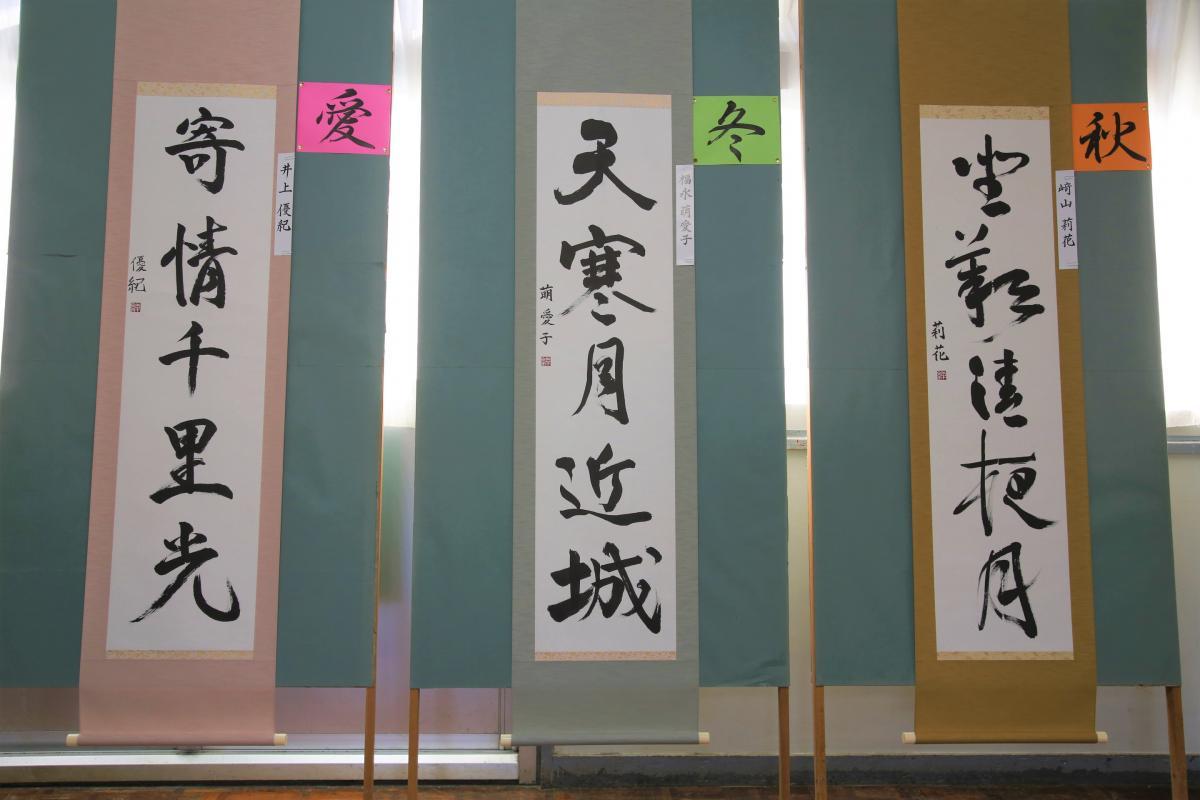 秋
崎山 莉花
坐清夜月
莉花
冬
福永 萌愛子
天寒月近城
萌愛子
愛
井上 優紀
寄情千里光
優紀